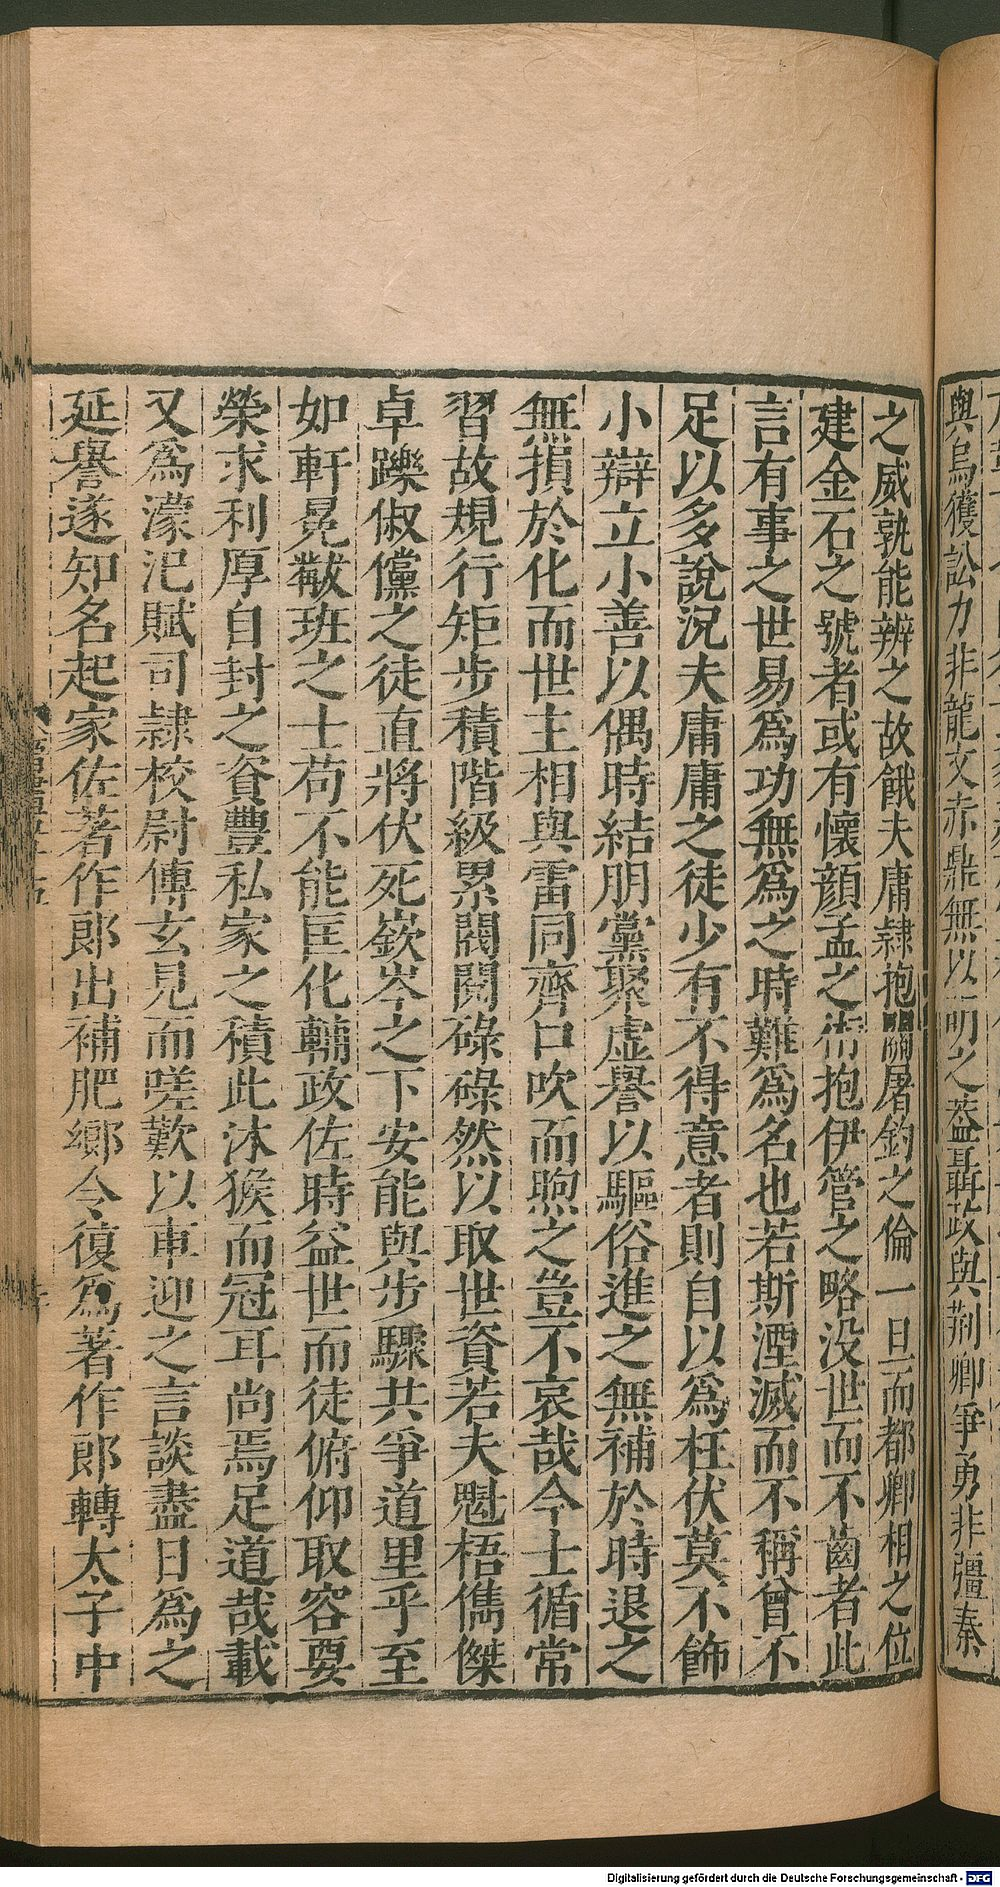 與烏獲訟力非龍文赤鼎無以明之蓋聶政與荆卿爭勇非彊秦
之威孰能辨之故餓夫庸隸抱關屠釣之倫一旦而都卿相之位
建金石之號者或有懷顏孟之術抱伊管之略没世而不齒者此
言有事之世易爲功無爲之時難爲名也若斯湮滅而不稱曾不
足以多說況夫庸庸之徒少有不得意者則自以爲枉伏莫不飾
小辯立小善以偶時結朋黨聚虛譽以驅俗進之無補於時退之
無損於化而世主相與雷同齊口吹而煦之豈不哀哉今士循常
習故規行矩步積階級累閥閱碌碌然以取世資若夫魁梧儁傑
卓躒俶儻之徒直將伏死嶔岑之下安能與步驟共爭道里乎至
如軒冕黻班之士苟不能匡化輔政佐時益世而徒俯仰取容要
榮求利厚自封之資豐私家之積此沐猴而冠耳尚焉足道哉載
又爲濛汜賦司隸校尉傅玄見而嗟歎以車迎之言談盡日爲之
延譽遂知名起家佐著作郎出補肥鄉令復爲著作郎轉太子中